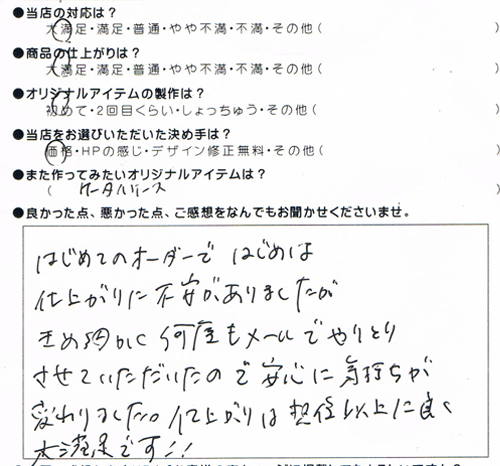 ●当店の対応は？
大満足・満足・普通・やや不満・不満・その他（　　　）
●商品の仕上がりは？
大満足・満足・普通・やや不満・不満・その他（　　　）
●オリジナルアイテムの製作は？
初めて・2回目くらい・しょっちゅう・その他（　　　）
●当店をお選びいただいた決め手は？
価格・HPの感じ・デザイン修正無料・その他（　　　）
●また作ってみたいオリジナルアイテムは？
（　　　）
●良かった点、悪かった点、ご感想をなんでもお聞かせくださいませ。
はじめてのオーダーで はじめは
仕上がりに不安がありましたが
きめ細かく何度もメールでやりとり
させていただいたので安心に気持ちが
変わりました。仕上がりは想像以上に良く
大満足です!!